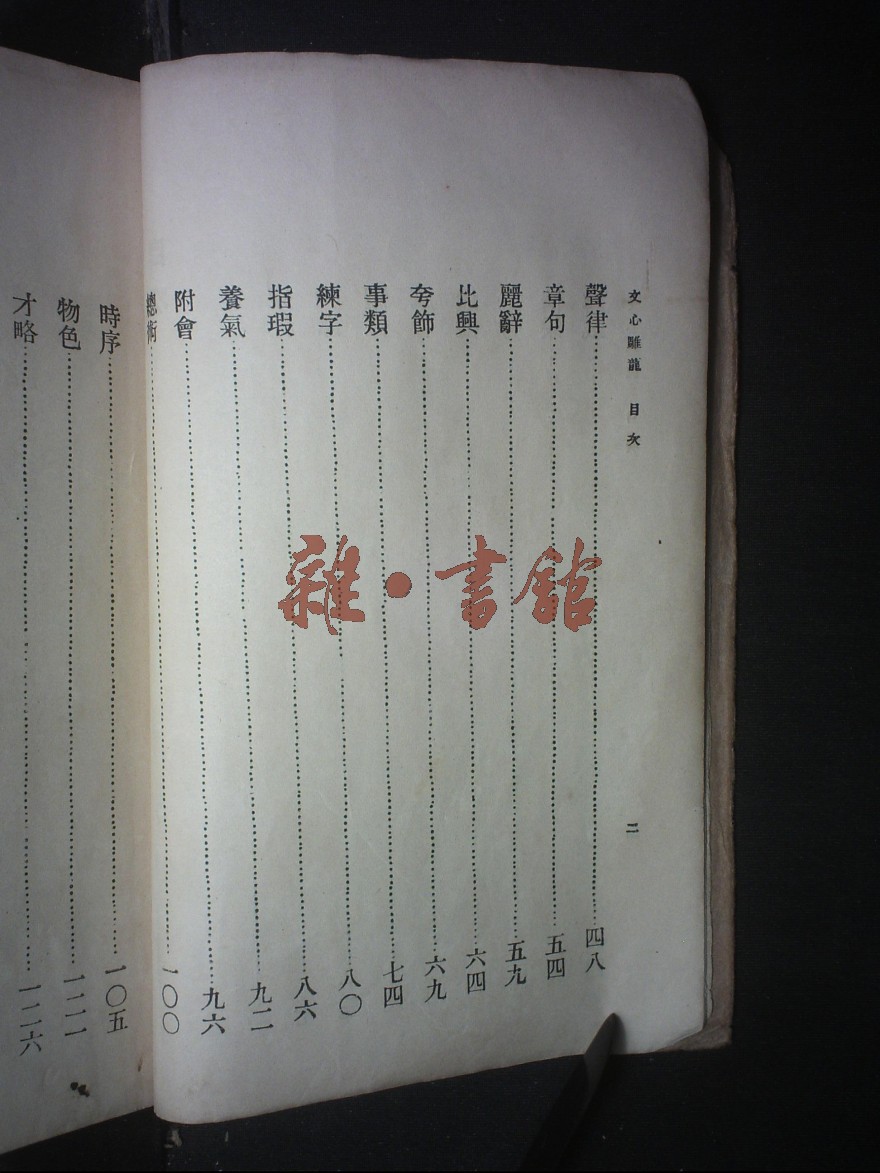 文心雕龍 目次 二
聲律……四八
章句……五四
麗辭……五九
比興……六四
夸飾……六九
事類……七四
練字……八〇
指瑕……八六
養氣……九二
附會……九六
總術……一〇〇
時序……一〇五
物色……一二一
才略……一二六
雜・書館